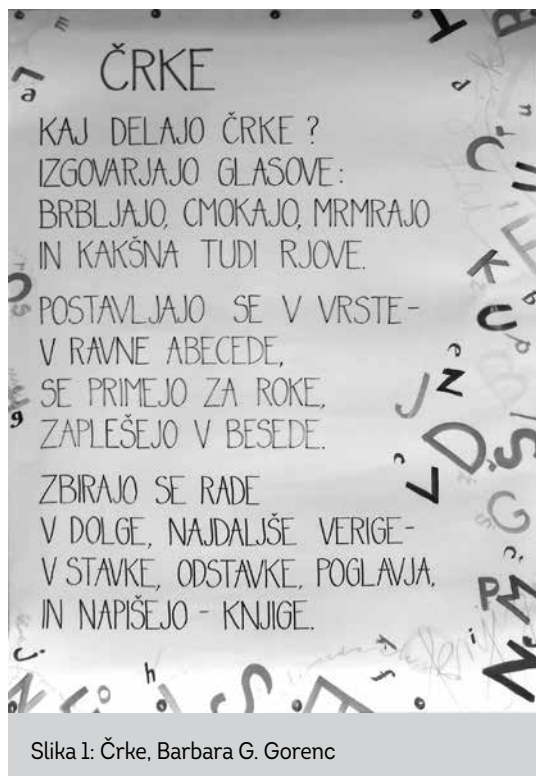 ČRKE
KAJ DELAJO ČRKE?
IZGOVARJAJO GLASOVE:
BRBLJAJO, CMOKAJO, MRMRAJO
IN KAKŠNA TUDI RJOVE.
POSTAVLJAJO SE V VRSTE-
V RAVNE ABECEDE,
SE PRIMEJO ZA ROKE,
ZAPLEŠEJO V BESEDE.
ZBIRAJO SE RADE
V DOLGE, NAJDALJŠE VERIGE-
V STAVKE, ODSTAVKE, POGLAVJA,
IN NAPIŠEJO - KNJIGE.
Slika 1: Črke, Barbara G. Gorenc